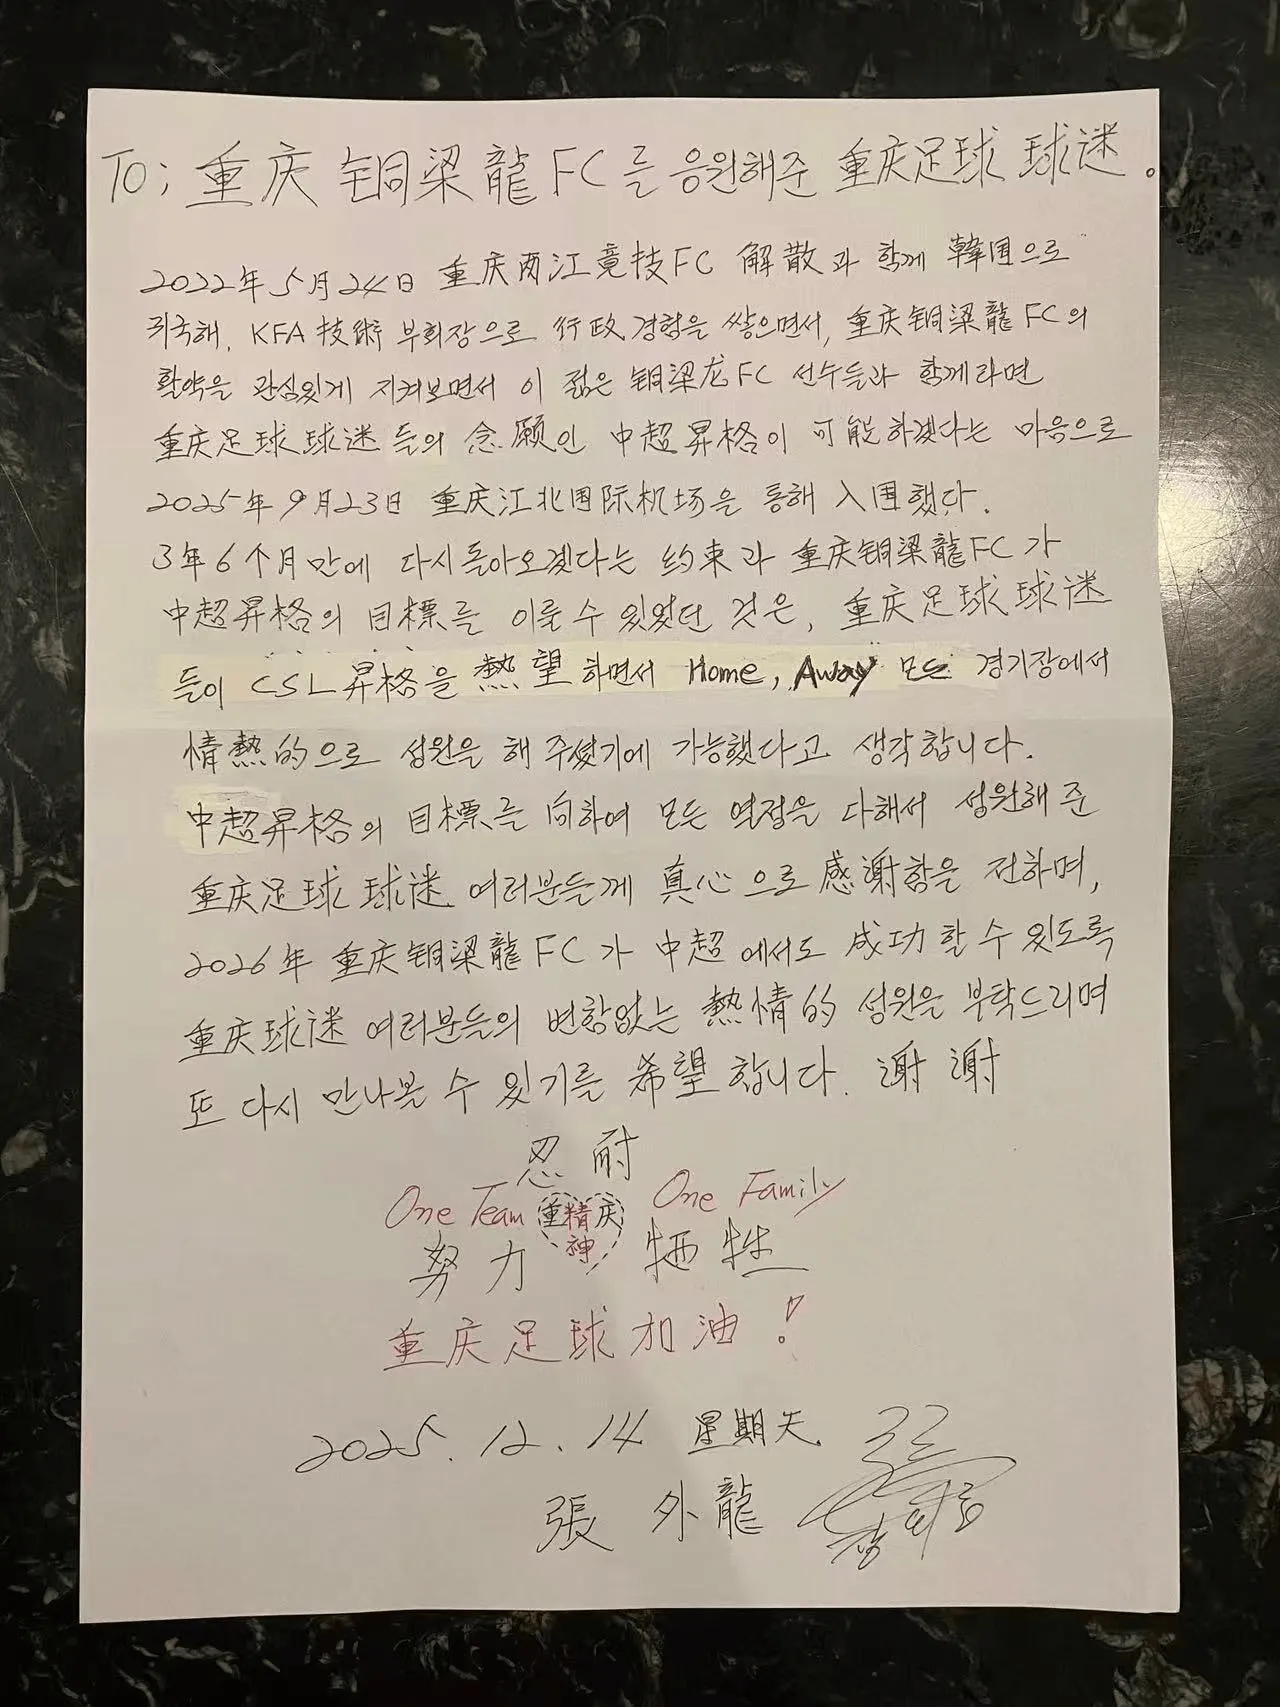 To; 重庆 铜梁龍FC를 응원해준 重庆足球 球谜.
2022年 5月 24日 重庆两江竟技FC 解散과 함께 韓国으로
귀국해, KFA 技術 부회장으로 行政 경험을 쌓으면서, 重庆铜梁龍 FC의
활약을 관심있게 지켜보면서 이 젊은 铜梁龙FC 선수들과 함께라면
重庆足球 球迷들의 念願인 中超昇格이 可能하겠다는 마음으로
2025年 9月23日 重庆江北国际机场을 통해 入国했다.
3年 6个月만에 다시돌아오겠다는 约束과 重庆铜梁龍FC가
中超昇格의 目標를 이룰수 있었던 것은, 重庆足球 球谜
들이 CSL昇格을 熱望하면서 Home, Away 모든 경기장에서
情熱的으로 성원을 해 주셨기에 가능했다고 생각합니다.
中超昇格의 目標를 向하여 모든 열정을 다해서 성원해 준
重庆足球 球迷 여러분들께 真心으로 感谢함을 전하며,
2026年 重庆铜梁龍FC가 中超에서도 成功할 수 있도록
重庆球谜 여러분들의 변함없는 熱情的 성원을 부탁드리며
또 다시 만나볼 수 있기를 希望합니다. 谢 谢
忍 耐
One Team 重精庆神 One Family
努 力 牺 牲
重 庆 足 球 加 油 !
2025. 12. 14 星期天
張 外 龍